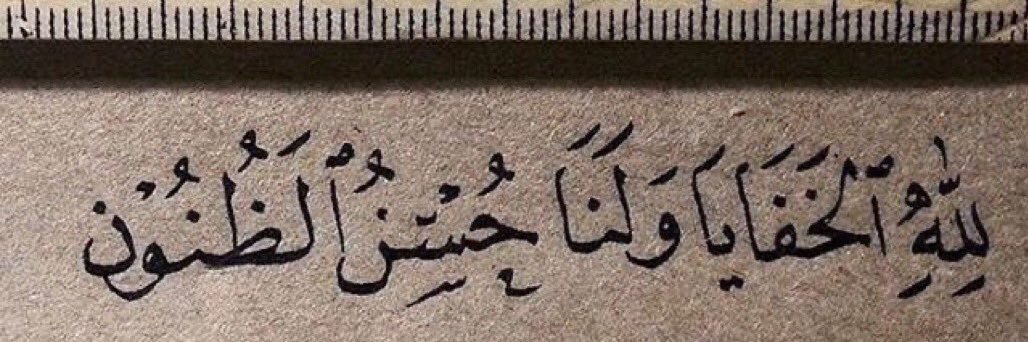 لِلَّهِ ٱلْخَفَايَا وَلَنَا حُسْنُ ٱلظُّنُوْنِ